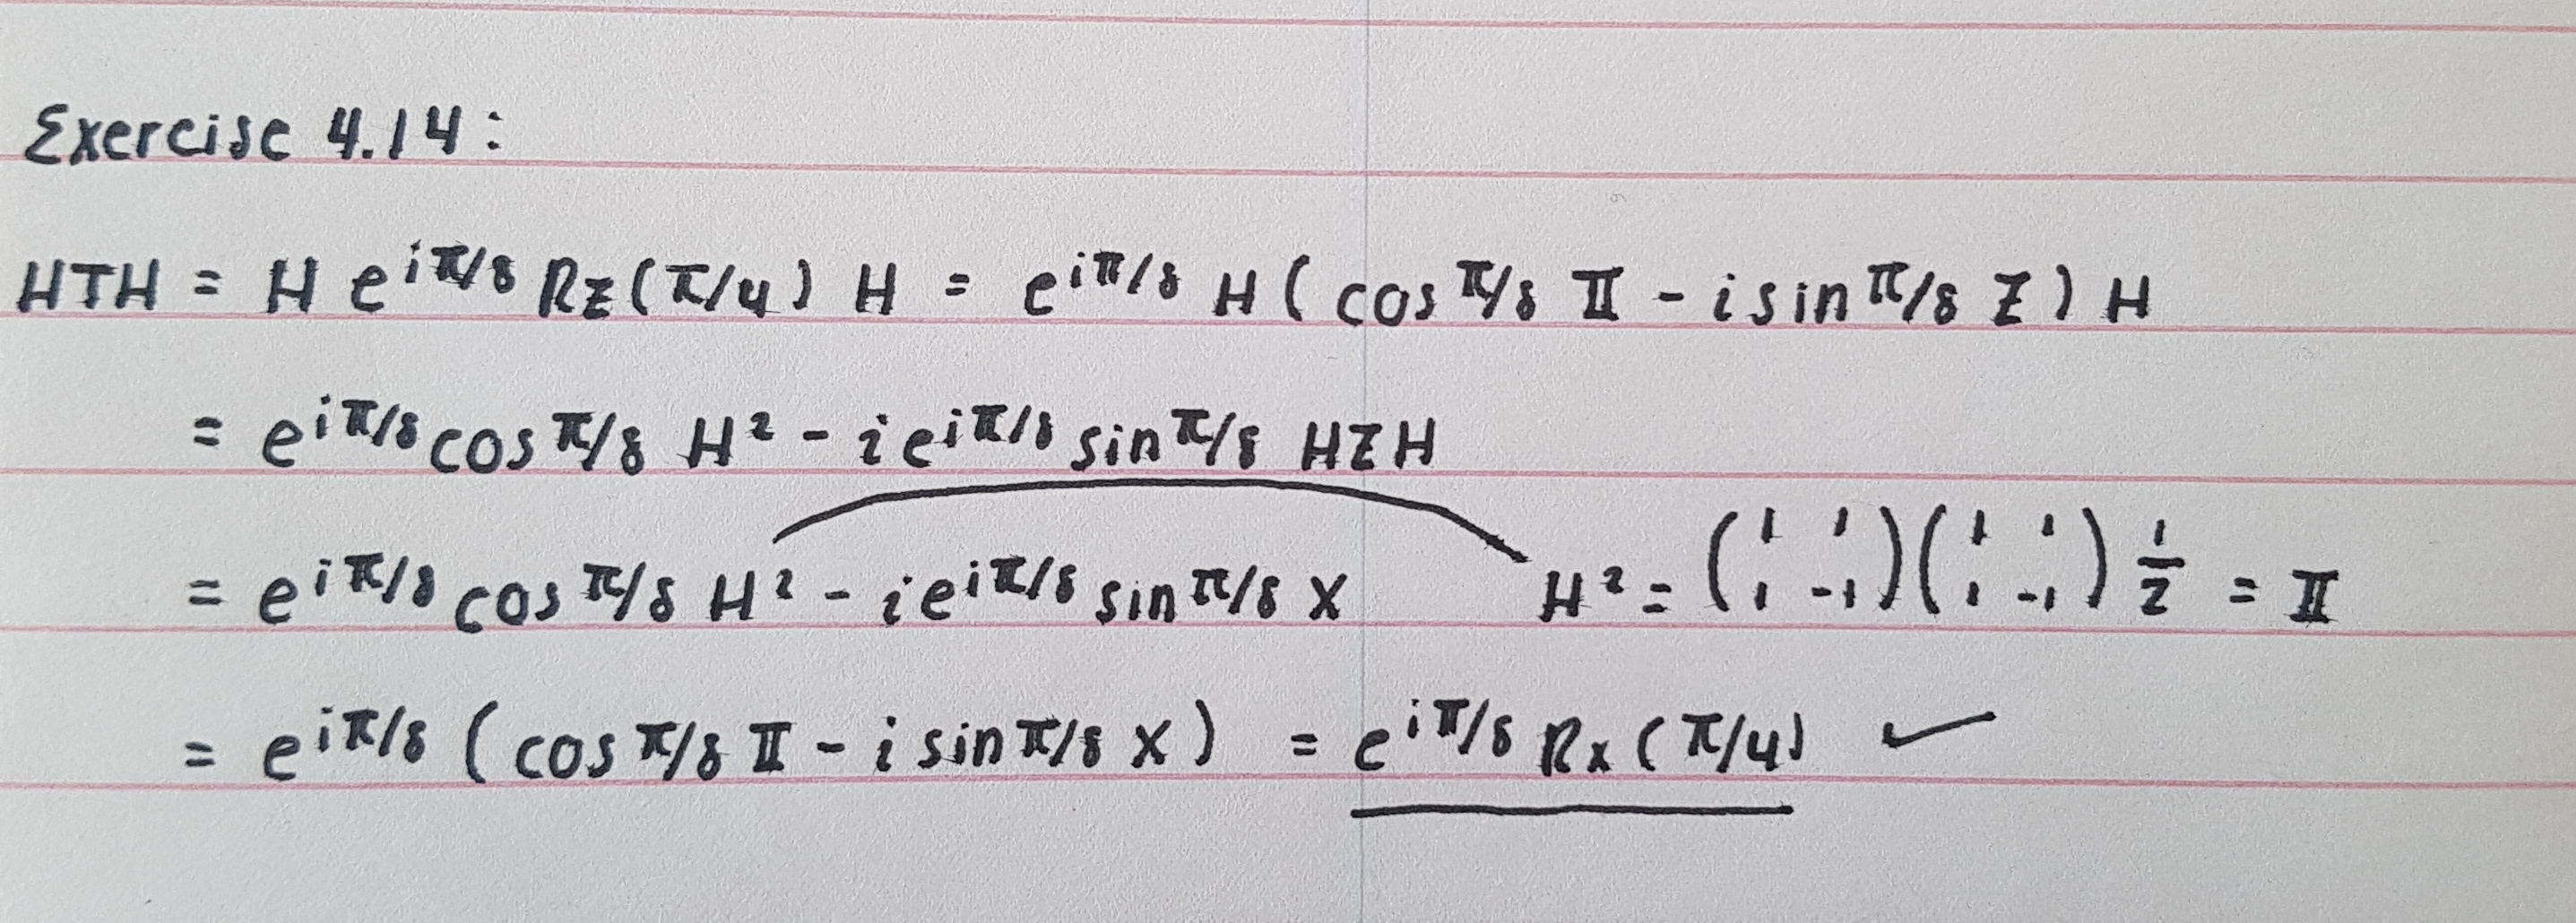 Exercise 4.14:
HTH = H e^{iπ/8} Rz(π/4) H = e^{iπ/8} H ( cos π/8 𝕀 - i sin π/8 Z ) H
= e^{iπ/8} cos π/8 H² - i e^{iπ/8} sin π/8 HZH
= e^{iπ/8} cos π/8 H² - i e^{iπ/8} sin π/8 X    H² = (1 1; 1 -1)(1 1; 1 -1) 1/2 = 𝕀
= e^{iπ/8} ( cos π/8 𝕀 - i sin π/8 X ) = e^{iπ/8} Rx(π/4) ✓